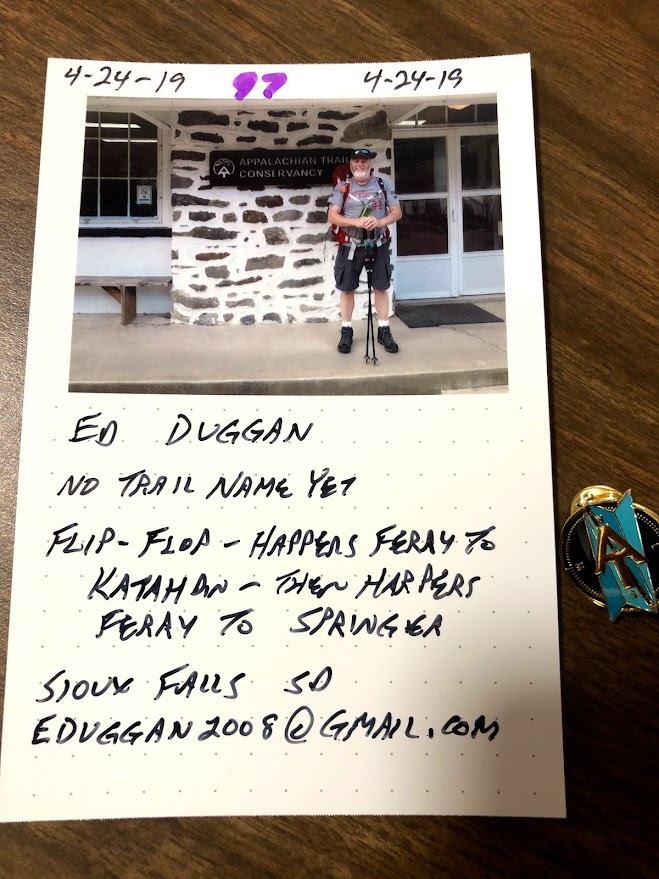 4-24-19 97 4-24-19
APPALACHIAN TRAIL
CONSERVANCY
ED DUGGAN
NO TRAIL NAME YET
FLIP-FLOP - HAPPERS FERRY TO
KATAHDIN - THEN HARPERS
FERRY TO SPRINGER
SIOUX FALLS SD
EDUGGAN2008@GMAIL.COM